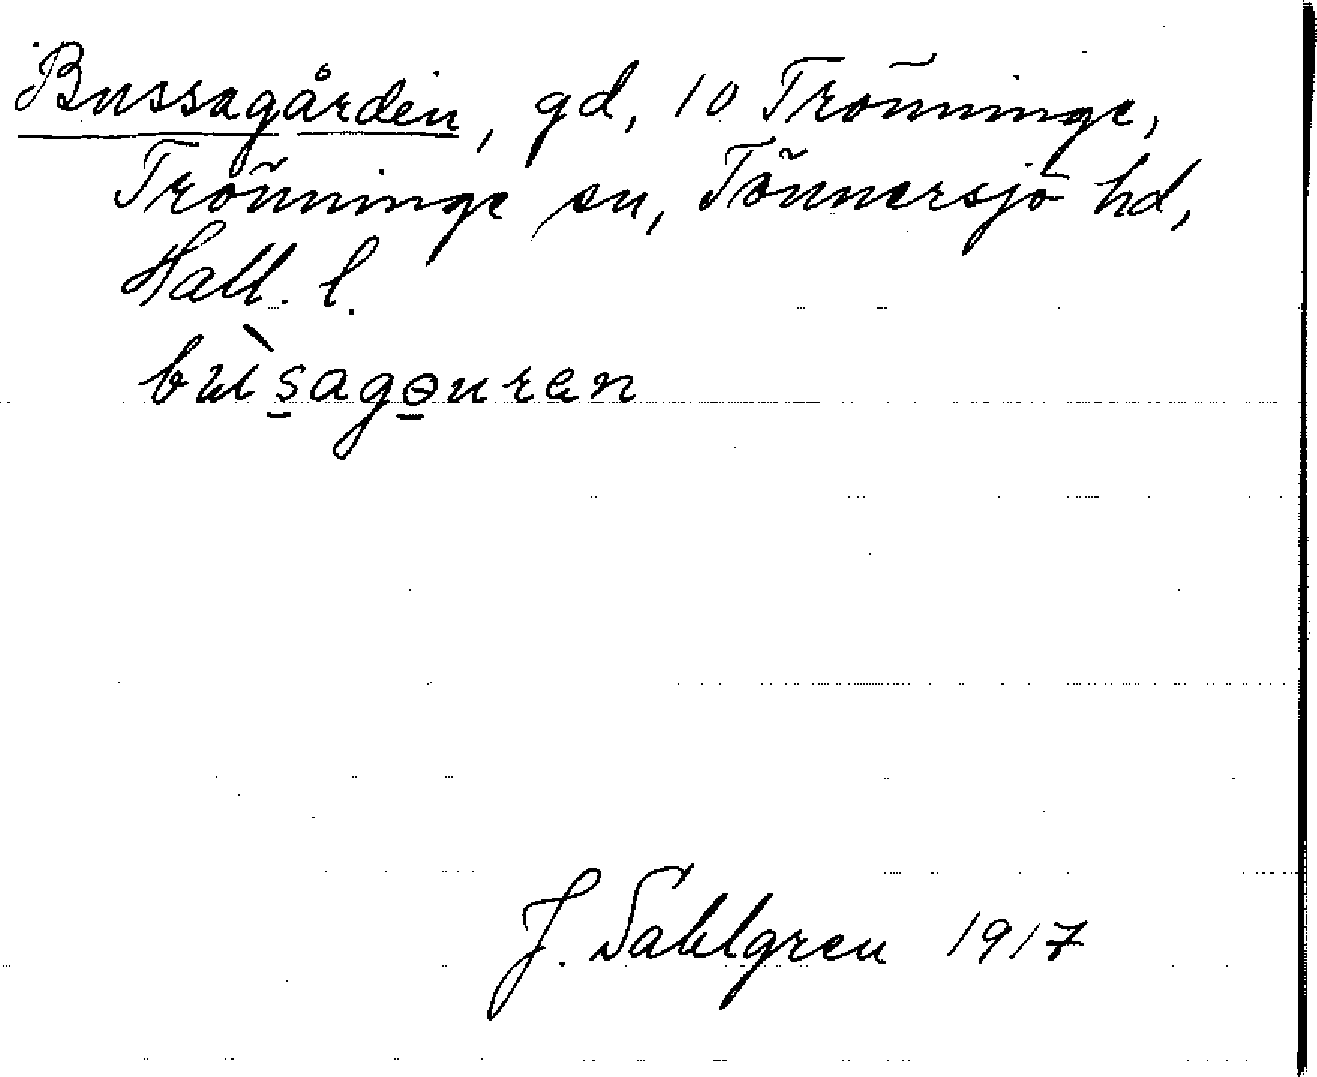 Bussagården, gd, 10 Trönninge,
Trönninge sn, Tönnersjö hd,
Hall. l.
bùsagɵuren
J. Sahlgren 1917